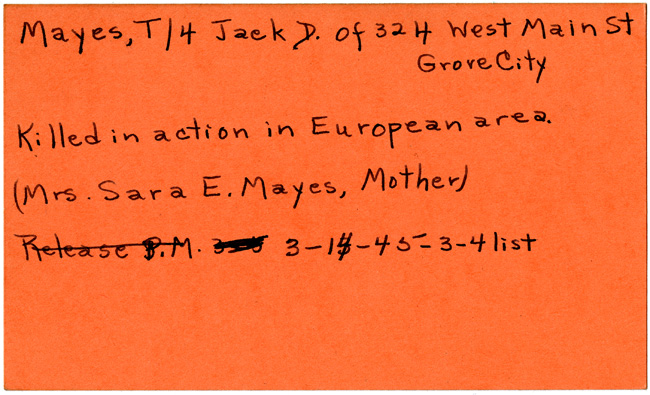 Mayes, T/4 Jack D. of 324 West Main St
Grove City
Killed in action in European area.
(Mrs. Sara E. Mayes, Mother)
Release P.M. 3-14-45-3-4 list